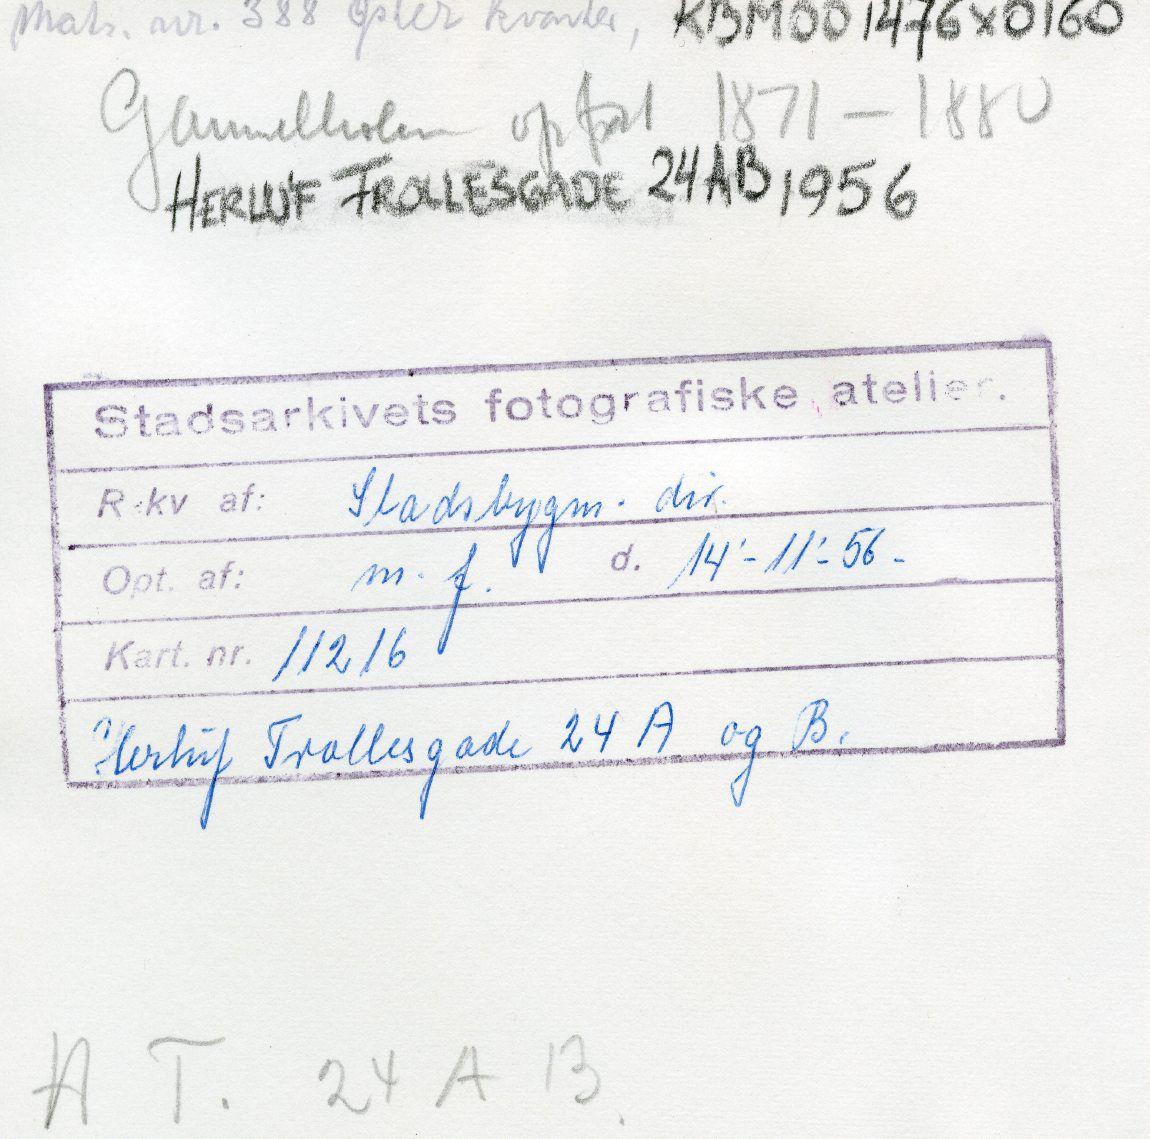 Matr. nr. 388 Øster Kvarter, KBM001476x0160
Gammelholm opført 1871 – 1880
HERLUF TROLLESGADE 24AB 1956
Stadsarkivets fotografiske atelier.
Rekv af: Stadsbygm. dir.
Opt. af: m. f. d. 14'-11'-56-
Kart. nr. 11216
Herluf Trollesgade 24 A og B.
H T. 24 A B.